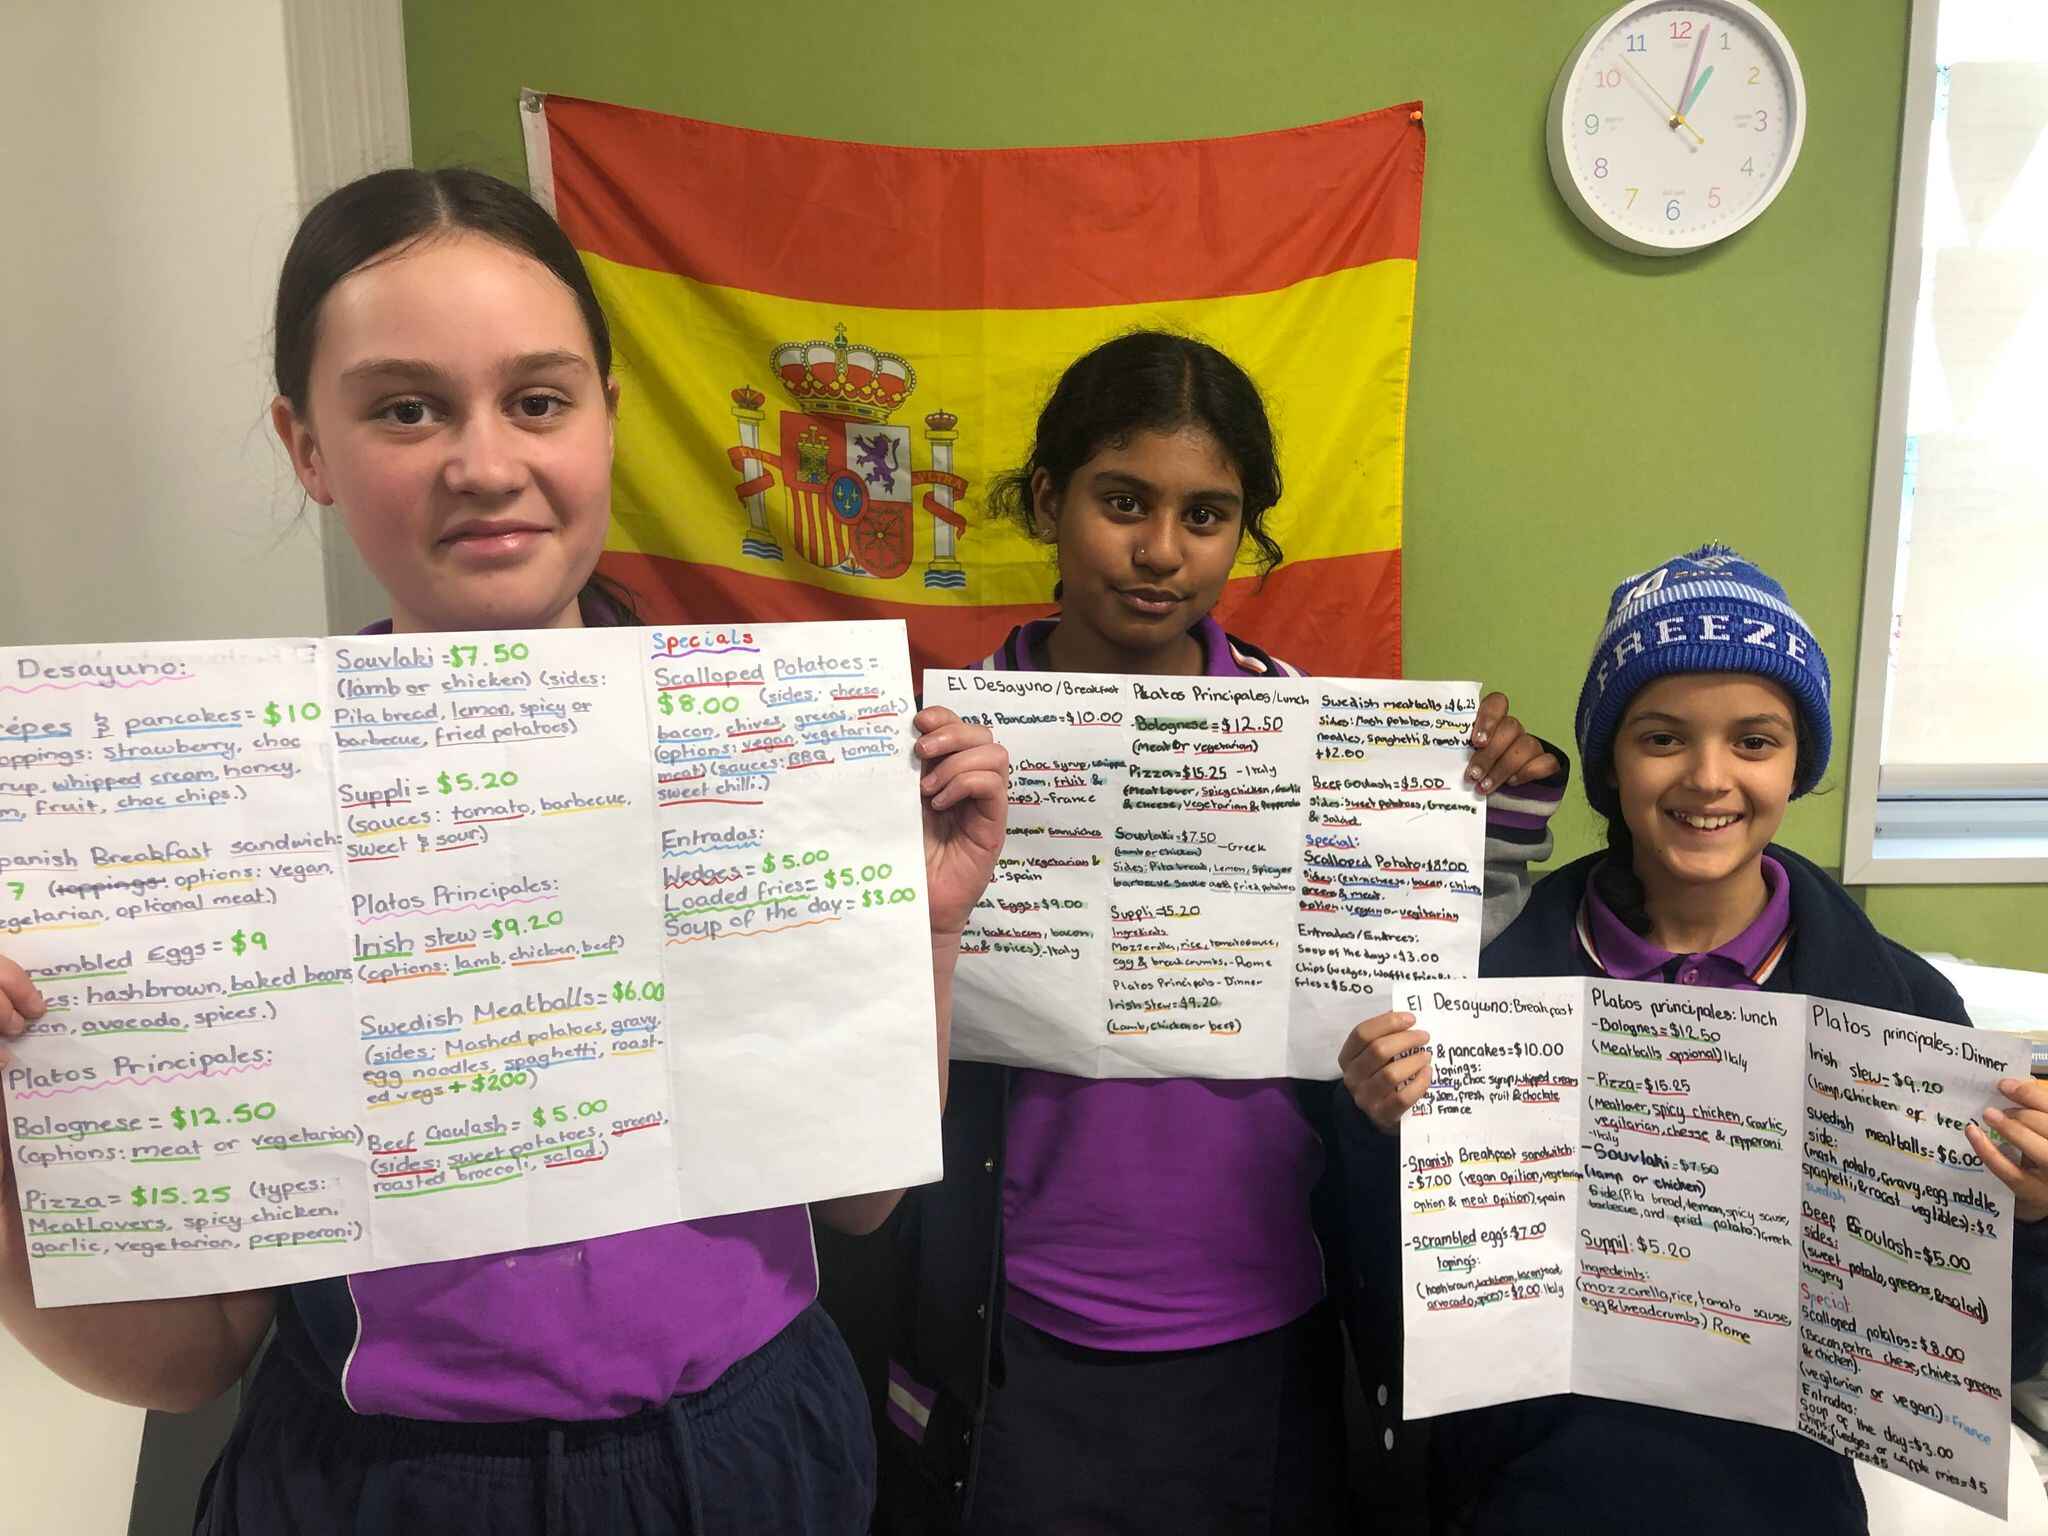 Desayuno:
pancakes = $10
strawberry, choc
whipped cream, honey,
fruit, choc chips.)
Breakfast sandwich:
7 (toppings: options: vegan,
optional meat.)
Eggs = $9
hashbrown, baked beans,
avocado, spices.)
Platos Principales:
Bolognese = $12.50
(options: meat or vegetarian)
Pizza = $15.25 (types:
MeatLovers, spicy chicken,
garlic, vegetarian, pepperoni)
Souvlaki = $7.50
(lamb or chicken) (sides:
Pita bread, lemon, spicy or
barbecue, fried potatoes)
Suppli = $5.20
(sauces: tomato, barbecue,
sweet & sour.)
Platos Principales:
Irish stew = $9.20
(options: lamb, chicken, beef)
Swedish Meatballs = $6.00
(sides: Mashed potatoes, gravy,
egg noodles, spaghetti, roast-
ed vegs + $200)
Beef Goulash = $5.00
(sides: sweet potatoes, greens,
roasted broccoli, salad.)
Specials
Scalloped Potatoes =
$8.00 (sides: cheese,
bacon, chives, greens, meat)
(options: vegan, vegetarian,
meat) (sauces: BBQ, tomato,
sweet chilli.)
Entradas:
Wedges = $5.00
Loaded fries = $5.00
Soup of the day = $3.00
El Desayuno/Breakfast
& Pancakes = $10.00
Choc syrup,
Jam, fruit &
- France
Vegetarian &
- Spain
Eggs = $9.00
bacon,
& spices) - Italy
Platos Principales/Lunch
- Bolognese = $12.50
(Meat or vegetarian)
Pizza = $15.25 - Italy
(Meat Lover, Spicy chicken, Garlic
& cheese, Vegetarian &
Souvlaki = $7.50
(Lamb or chicken) - Greek
Sides: Pita bread, Lemon,
barbecue sauce fried potatoes
Suppli = $5.20
Mozzerella, rice,
egg & breadcrumbs. - Rome
Platos Principals - Dinner
Irish stew = $9.20
(Lamb, chicken or beef)
Swedish meatballs =
sides: Mash potatoes, gravy
noodles, spaghetti &
+ $2.00
Beef Goulash = $5.00
Sides: Sweet potatoes,
& Salad
Special:
Scalloped Potato = $8.00
Sides: (extra cheese, bacon,
greens & meat.
option: vegan or
Entradas/Entrees:
Soup of the day = $3.00
fries = $5.00
El Desayuno: Breakfast
& pancakes = $10.00
topings:
choc syrup, whipped cream
Jam, fresh fruit &
France
- Spanish Breakfast sandwitch:
= $7.00 (vegan opition, vegetarian
option & meat opition), spain
- scrambled egg's: $7.00
toping's:
= $2.00. Italy
Platos principales: lunch
- Bolognes = $12.50
(Meatballs opsional) Italy
- Pizza = $15.25
(Meatlover, spicy chicken, Garlic,
chesse & pepperoni
- Italy
- Souvlaki = $7.50
(lamp or chicken)
Side: (Pita bread, lemon, spicy sause,
barbecue, and fried potato:) Greek
Suppil: $5.20
(mozzarella, rice, tomato sause,
egg & breadcrumbs.) Rome
Platos principales: Dinner
Irish stew = $9.20
(lamp, chicken or
swedish meatballs = $6.00
side:
(mash potato, gravy, egg noddle,
spaghetti, & roast = $2
swedish
Beef Goulash = $5.00
sides:
(sweet potato, greens, & salad)
Hungery
Special
Scalloped potatos = $8.00
(Bacon, extra chese, chives, greens
& chicken).
(vegitarian or vegan.) = France
Entradas:
Soup of the day = $3.00
FREEZE
12
1
2
3
4
5
6
7
8
9
10
11